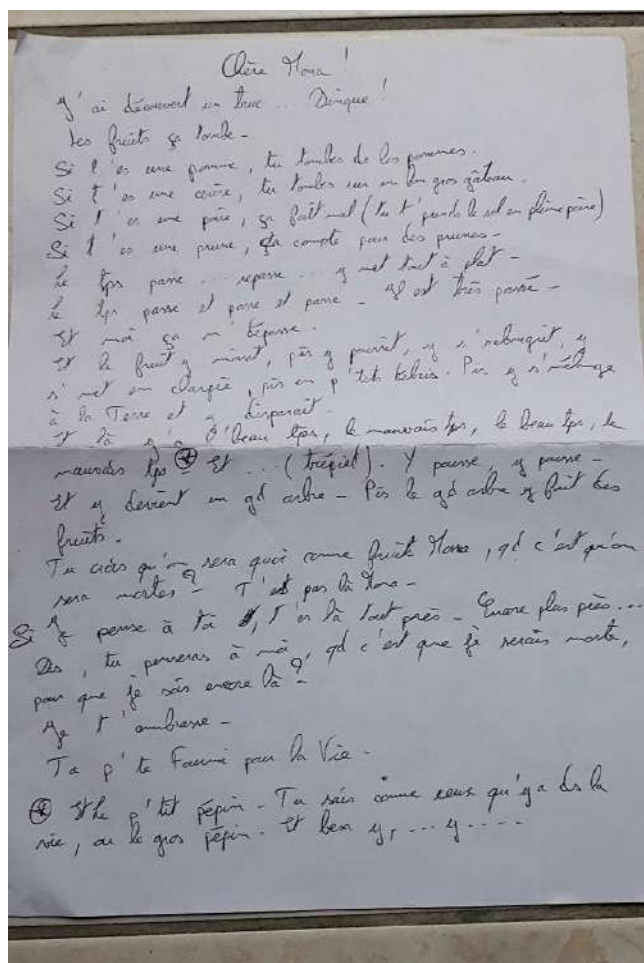 Chère Mona !
J'ai découvert un truc ... Dingue !
Les fruits ça tombe -
Si t'es une pomme, tu tombes de les pommes.
Si t'es une cerise, tu tombes sur un bon gros gâteau.
Si t'es une poire, ça fait mal (tu t'prends le sol en pleine poire)
Si t'es une prune, ça compte pour des prunes -
Le tps passe ... repasse ... y met tout à plat -
Le tps passe et passe et passe - Il est très passé -
Et moi ça m'dépasse.
Et le fruit y murit, pis y pourrit, y s'rabougrit, y
s'met en charpie, pis en p'tits débris. Pis y s'mélange
à la Terre et y disparaît.
Et là y'a l'beau tps, le mauvais tps, le beau tps, le
mauvais tps * Et ... (trépied). Y pousse, y pousse -
Et y devient un gd arbre - Pis le gd arbre y fait des
fruits.
Tu crois qu'on sera quoi comme fruits Mona, qd c'est qu'on
sera mortes ? T'es pas là Mona -
Si j'pense à toi, t'es là tout près - Encore plus près ...
Dis, tu penseras à moi, qd c'est que je serais morte,
pour que je sois encore là ? -
Je t'embrasse -
Ta p'te Fourmi pour la Vie -
* Et le p'tit pépin - Tu sais comme ceux qu'y a ds la
vie, ou le gros pépin. Et ben y, ... y ....